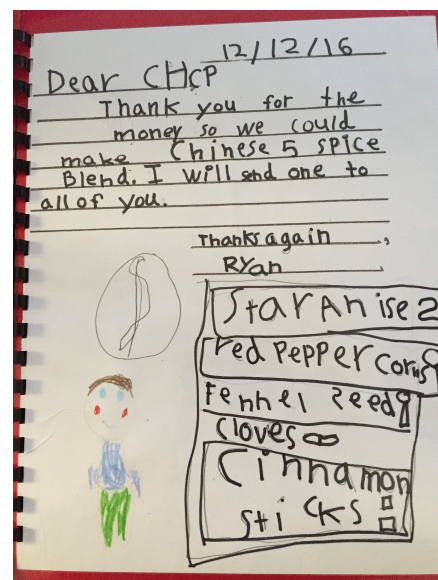 12/12/16
Dear CHCP
Thank you for the
money so we could
make Chinese 5 spice
Blend. I will send one to
all of you.
Thanks again,
Ryan
Star Anise 2
red pepper corns
Fennel Seed
cloves
Cinnamon
sticks